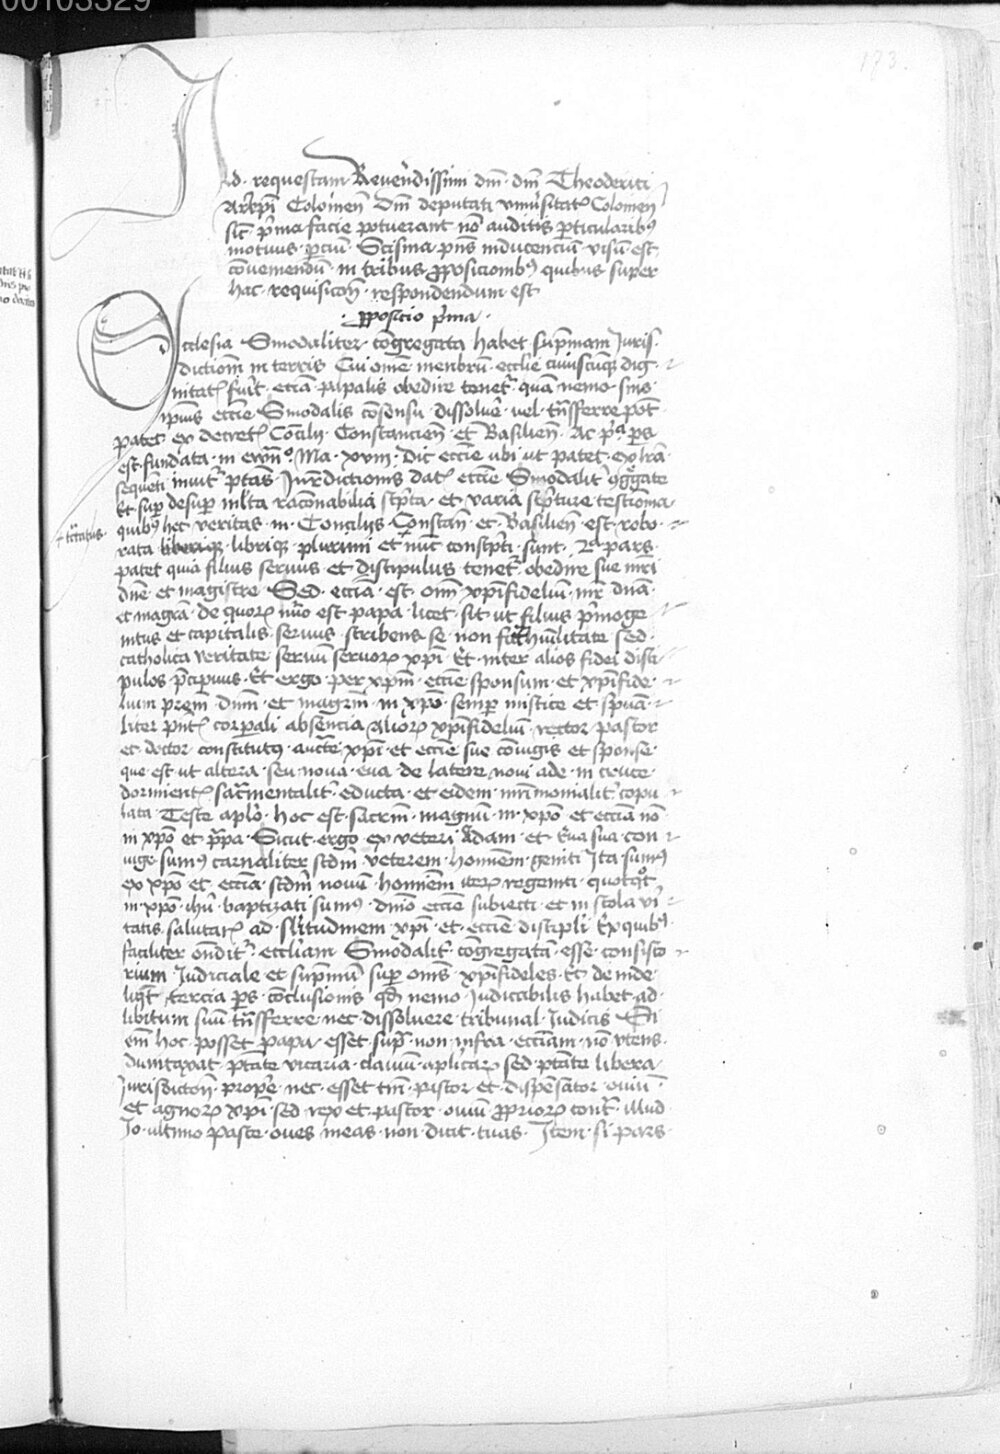 00103329
173.
Ad requestam Reverendissimi dm̄ dm̄ Theoderici
Arepi Colonien̄ Dm̄ deputati vniu̓sitatꝭ Colonien̄
sic pͥma facie potuerant nō auditis ꝑticularibꝰ
motiuis ꝑciū Scisma p̄ns inducenciū visū est
ꝯueniendū in tribus ꝓposicionibꝰ quibus super
hac requisicōn respondendum est
ꝓposicio pͥma
Ecclesia Sinodaliter cōgregata habet sup̄mam Juris
dictionē in terris Cui omē menbrū ecclie cuiuscūqꝫ dig
nitatꝭ fuīt eciā papalis obedire tenetͬ quā nemo sine
ipius eccie Sinodalis cōsensu dissolue̓ vel tn̄sferre pōt
patet ex decretꝭ Cōcilij Constancien̄ et Basilien̄ Ac pͥa ꝑs
est fundata in ewn̄o Mͣ xviij Dic eccie ubi ut patet ex lr̄a
sequēti inuitͬ ptās Jurisdictionis datꝭ eccie Sinodalitͬ cōgͬgate
Et suꝑ desuꝑ mlta racōnabilia scp̄ta et varia scp̄ture testimōia
quibꝰ hec veritas in Concilijs Constan̄ et Basilien̄ est robo
tractatus
rata librique plurimi et nūc conscp̄ti sunt 2ᵃ pars
patet quia filius seruus et discipulus tenetͬ obedire sue mr̄i
dn̄e et magistre Sed eccīa est om̄ xp̄ifideliū mr̄ dn̄a
et magr̄a de quorꝝ nūo est papa licet sit ut filius pͥmoge
nitus et capitalis seruus scribens se non ficta hūilitate sed
catholica veritate seruū seruorꝝ xp̄i Et inter alios fidei disci
pulos pͥcipuus Et ergo per xp̄m eccie sponsum et xp̄ifide
lium prēm dn̄m et magrm̄ in xp̄o semꝑ mistice et spūa
liter pn̄tꝭ corꝑali absencia aliorꝝ xp̄ifideliū rector pastor
et doctor constitutꝰ aucte xp̄i et eccie sue cōiugis et sponse
que est ut altera seu noua eua de latere noui ade in cruce
dormientꝭ sacͬmentalitͬ educta et eidem mr̄imonialitͬ copu
lata Teste aplō hoc est sacrm̄ magnū in xp̄o et eccīa nō
in xp̄o et pp̄a Sicut ergo ex veteri Adam et Eua sua con
iuge sumꝰ carnaliter scdm̄ veterem hominem geniti Ita sumꝰ
ex xp̄o et eccīa scdm̄ nouū hominem iterꝝ regeniti quotqͦt
in xp̄o ihū baptizati sumꝰ dnīo eccie subiecti et in scola vi
tatis salutarꝭ ad slitudinem xp̄i et eccie discipli Ex quibꝰ
faciliter ōnditͬ eccliam Sinodalitͬ cōgregatā esse consisto
rium Judiciale et sup̄mū suꝑ om̄s xp̄ifideles Et deinde
liqͭ tercia ꝑs cōclusionis qd nemo Judicabilis habet ad
libitum suū tn̄sferre nec dissoluere tribunal Judicis Si
em̄ hoc posset papa esset supͬ non infra ecciam nō vtens
dumtaxat ptāte vicaria clauiū aplicarꝝ sed ptāte libera
Jurisdictōn prop̓e nec esset tm̄ pastor et dispēsator ouiū
et agnorꝝ xp̄i sed rex et pastor ouiū ꝓpriorꝝ contͬ illud
Jo ultimo Pasce oues meas non dicit tuas Item si pars